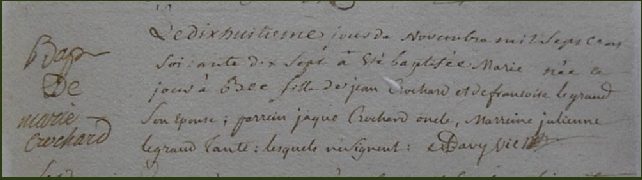 Bap
De
marie
Crochard
Le dix huitieme jour de Novembre mil Sept Cens
Soixante dix Sept à été baptisée Marie née ce
jour à fille de jean Crochard et de francoise legrand
Son Epouse ; parrein jaque Crochard oncle, Marreine julienne
legrand Tante : lesquels ne Signent : Davy vic